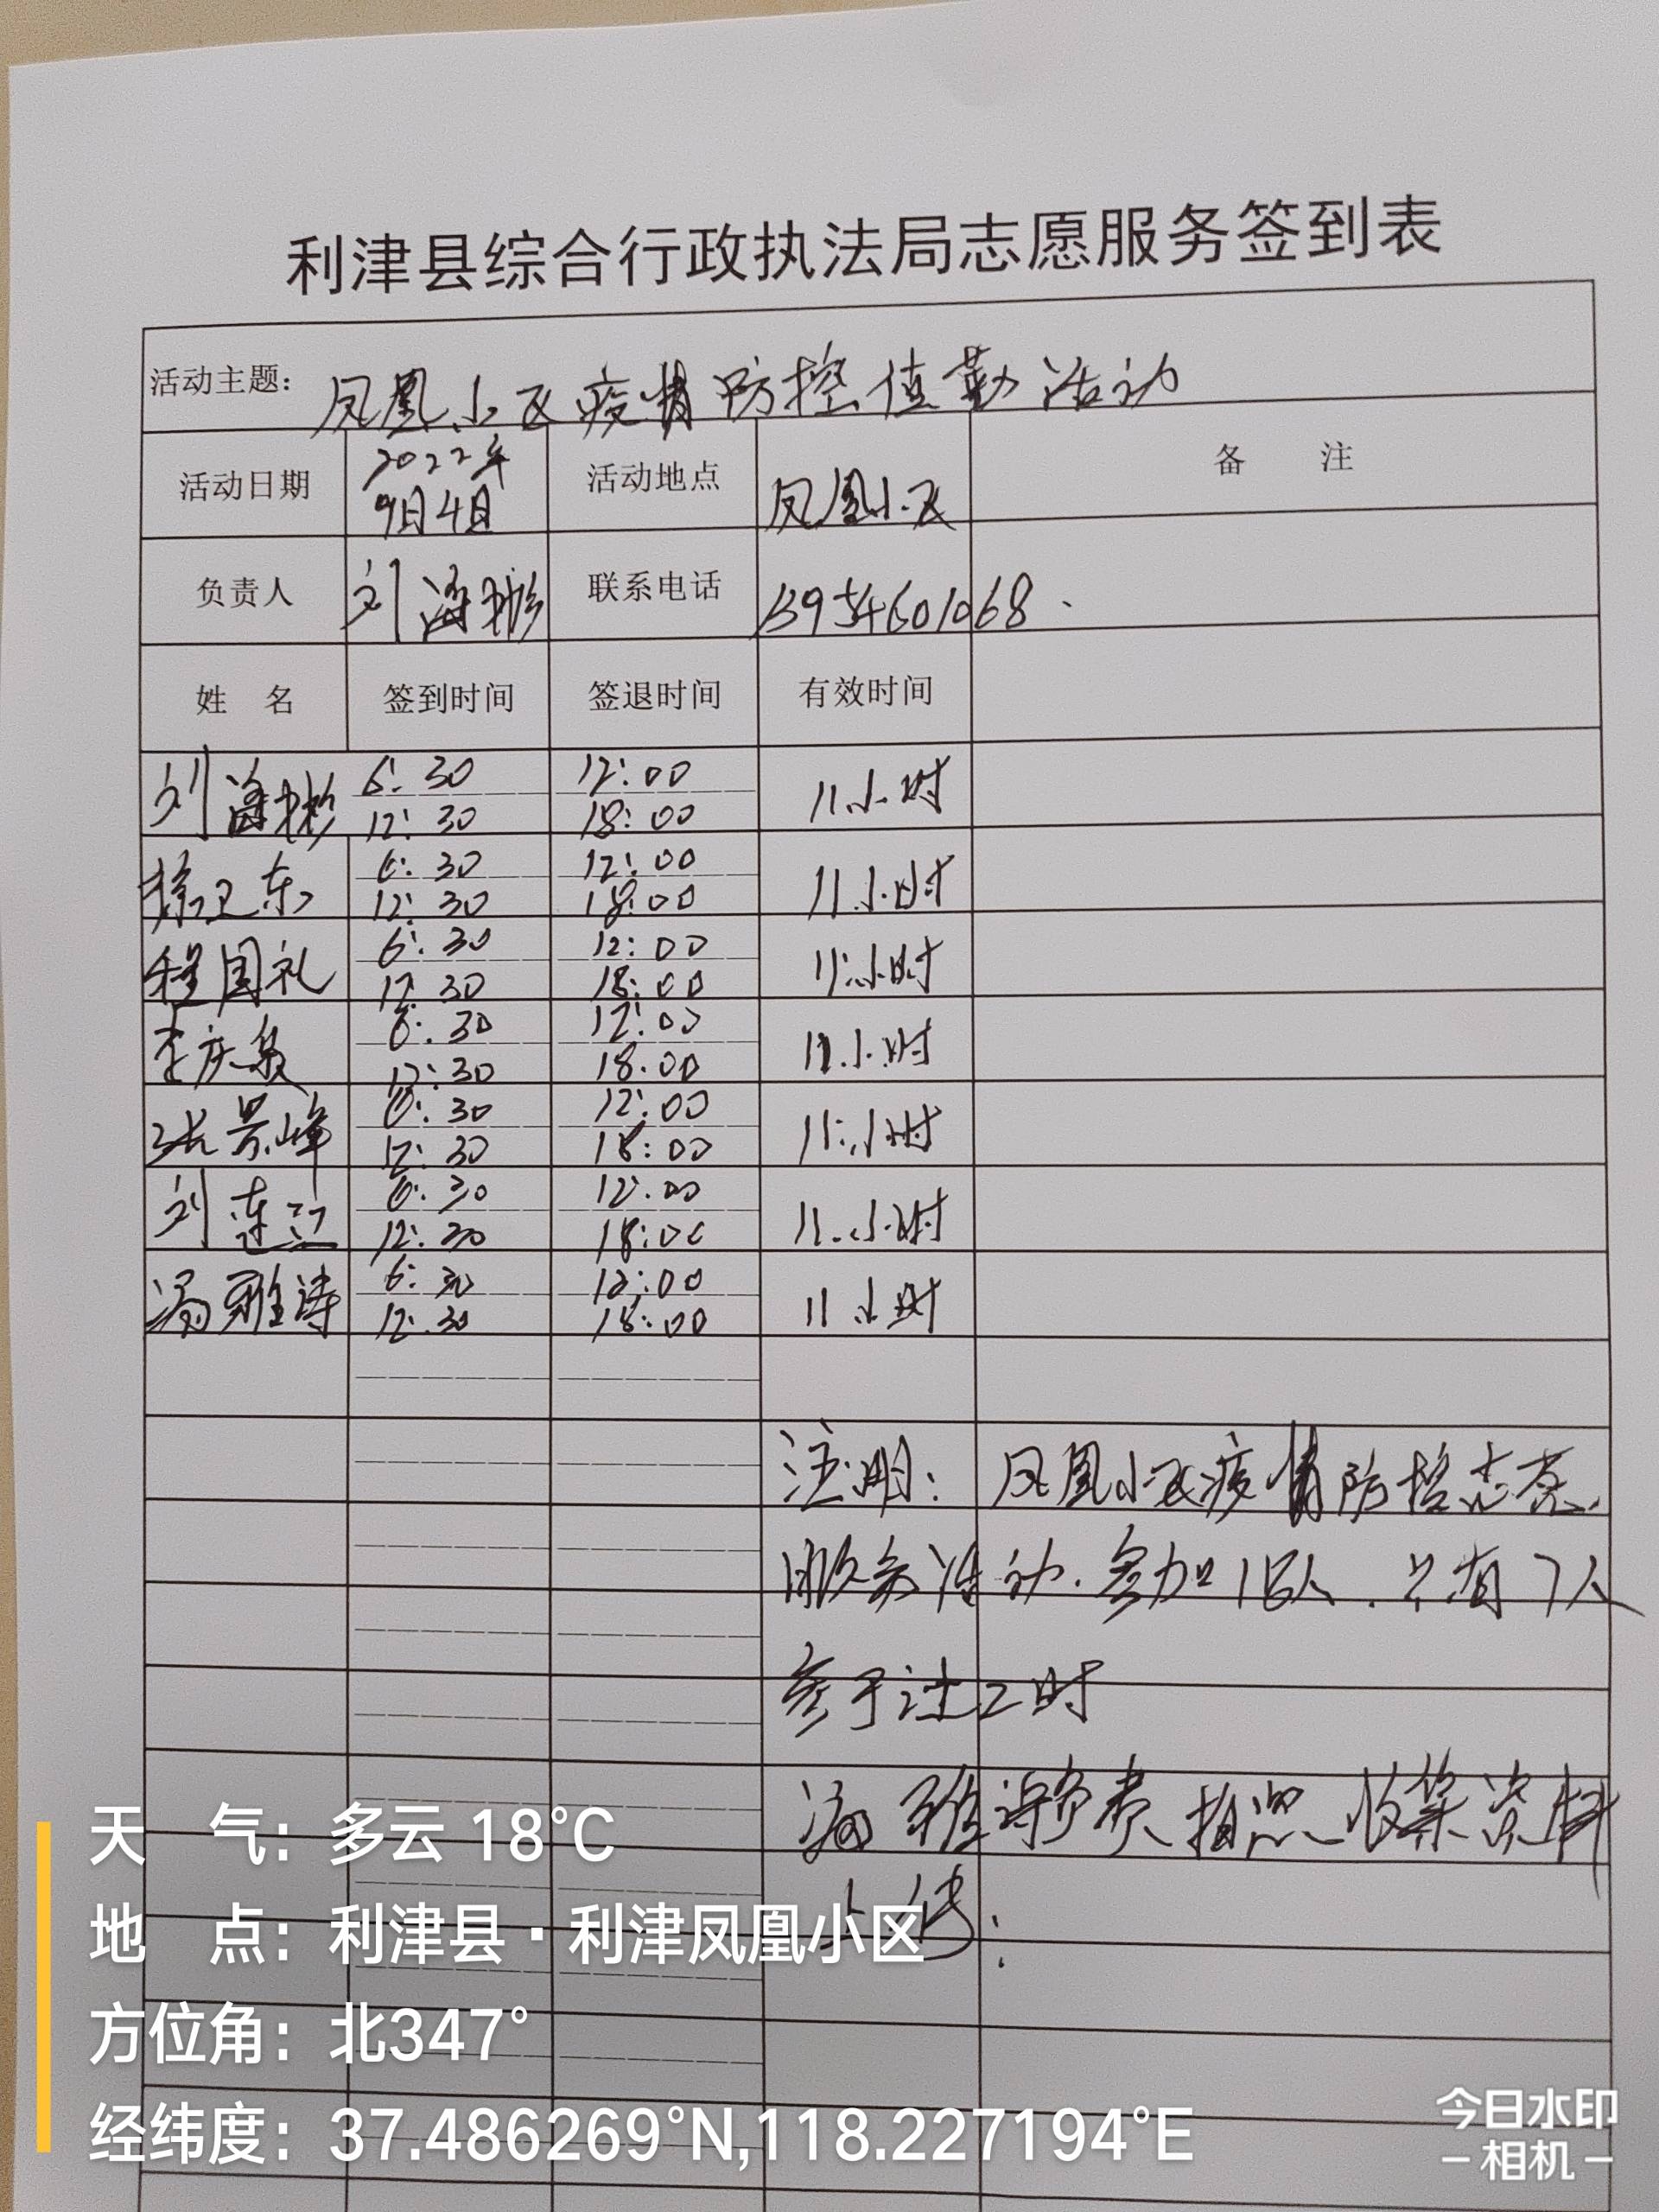 利津县综合行政执法局志愿服务签到表
活动主题: 凤凰小区疫情防控值勤活动
活动日期 2022年9月4日 活动地点 凤凰小区 备 注
负责人 刘海彬 联系电话 13954601068
姓 名 签到时间 签退时间 有效时间
刘海彬 6:30 12:00 11小时
12:30 18:00
徐卫东 6:30 12:00 11小时
12:30 18:00
程国礼 6:30 12:00 11小时
12:30 18:00
李庆 6:30 12:00 11小时
12:30 18:00
张景峰 6:30 12:00 11小时
12:30 18:00
刘连江 6:30 12:00 11小时
12:30 18:00
冯雅诗 6:30 12:00 11小时
12:30 18:00
注明: 凤凰小区疫情防控志愿
服务活动.参加18人.只有7人
参于计工时
冯雅诗负责拍照收集资料
上传
天 气: 多云 18℃
地 点: 利津县·利津凤凰小区
方位角: 北347°
经纬度: 37.486269°N,118.227194°E
今日水印
-相机-